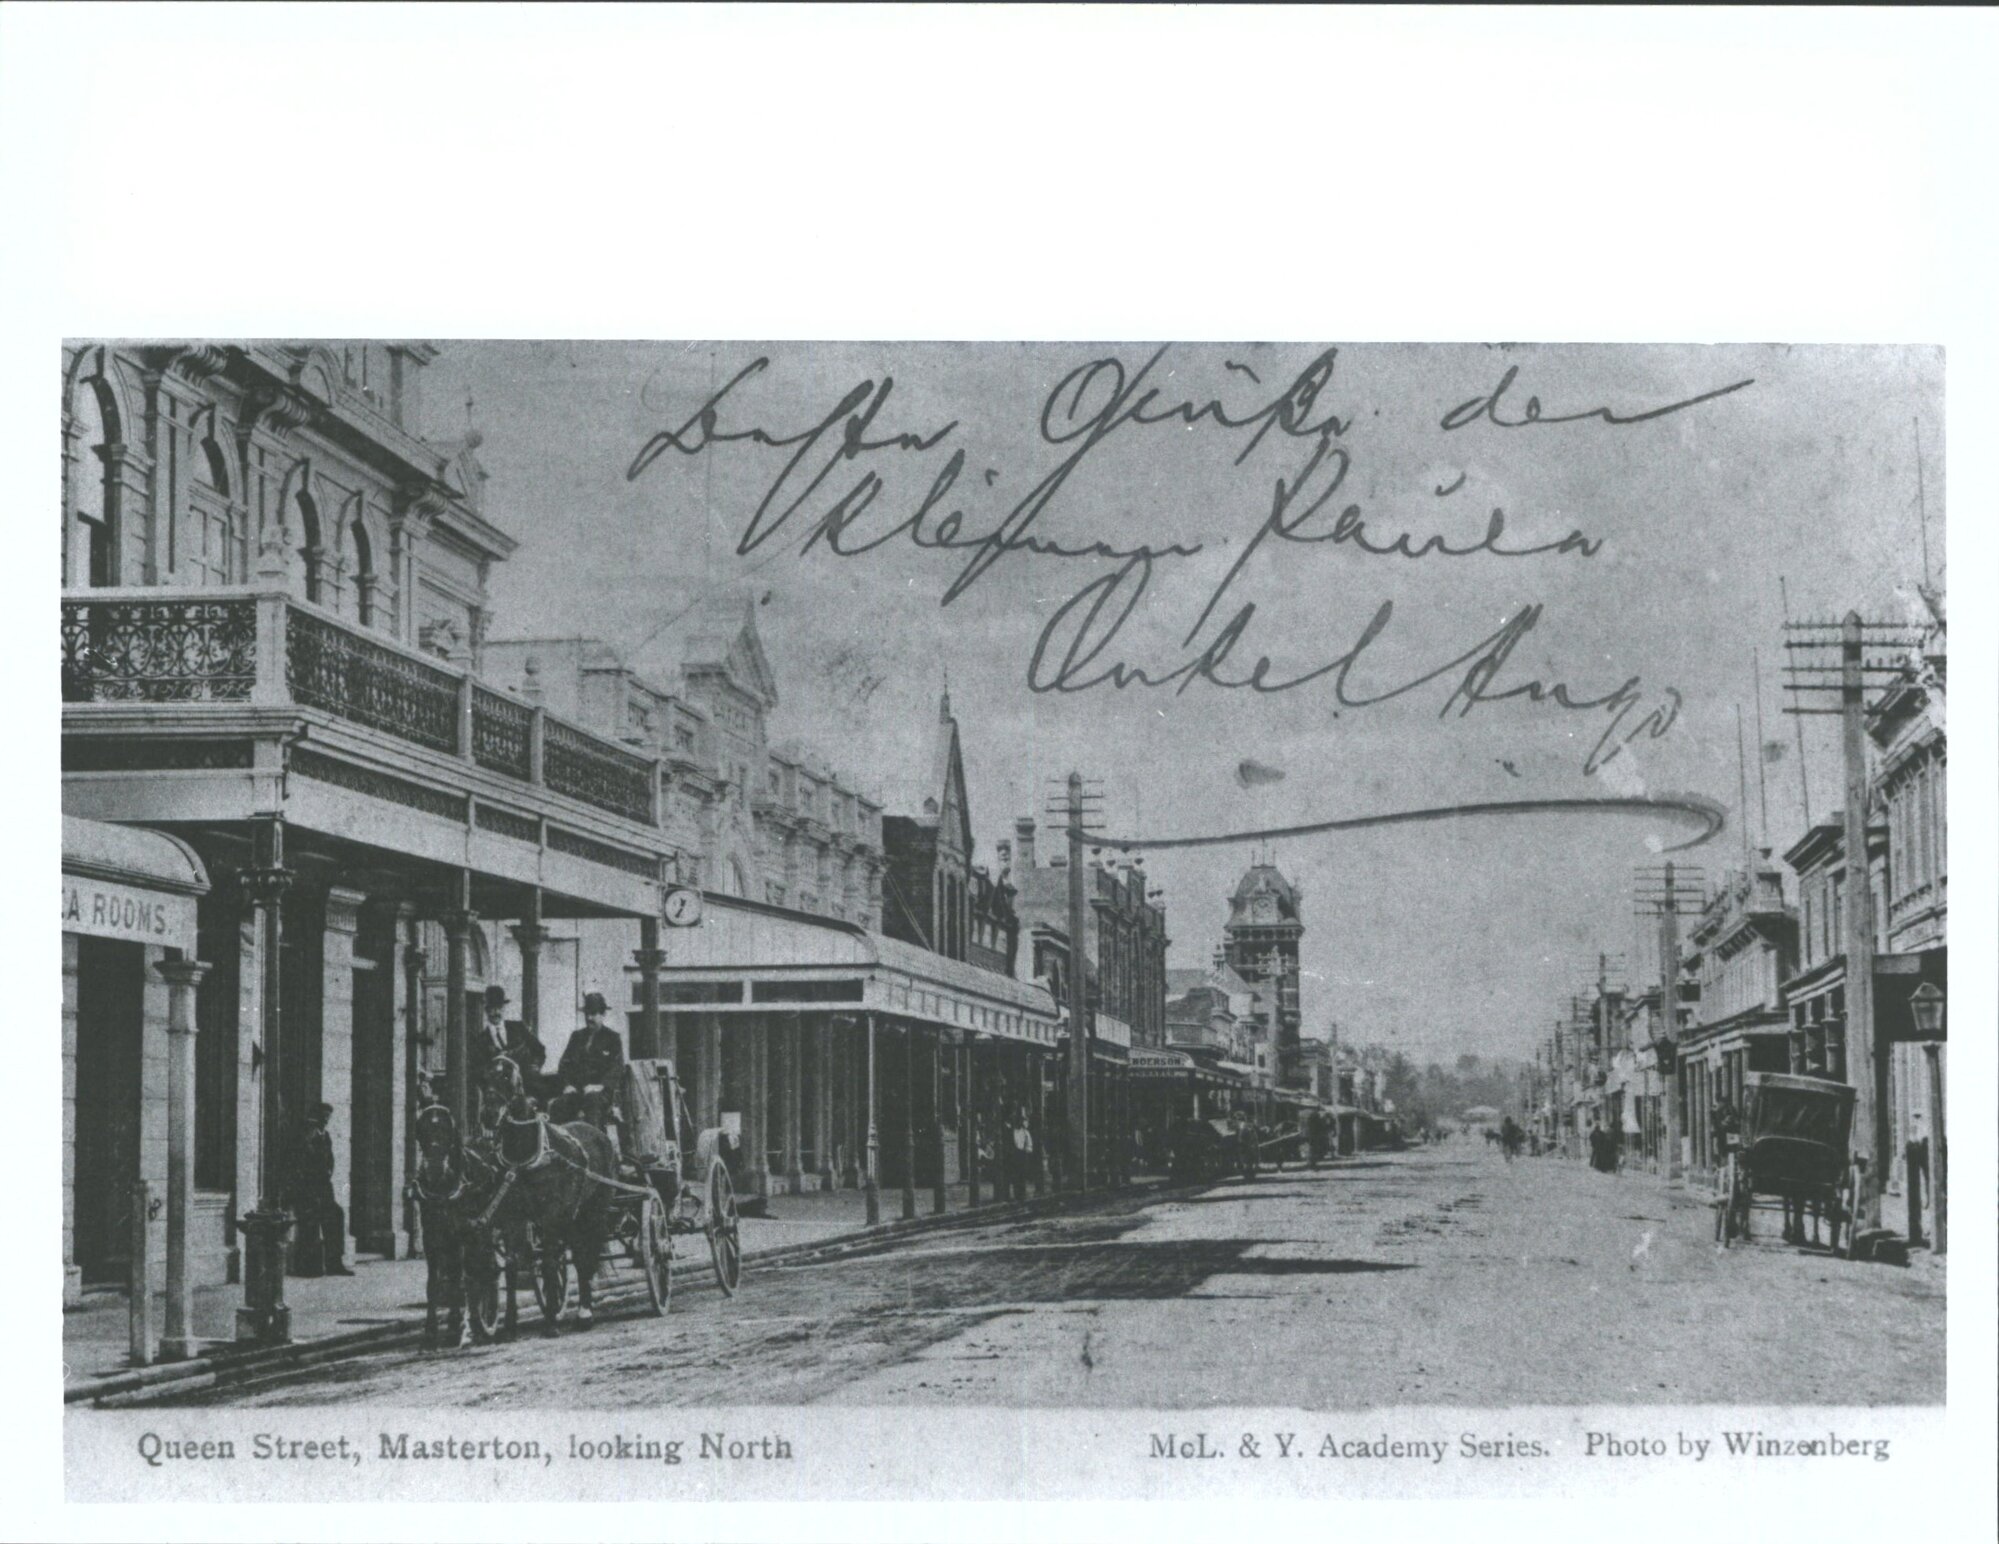 Beste Grüße der
kleinen Paula
Onkel Hugo
A ROOMS.
NDERSON
Queen Street, Masterton, looking North
McL. & Y. Academy Series. Photo by Winzenberg